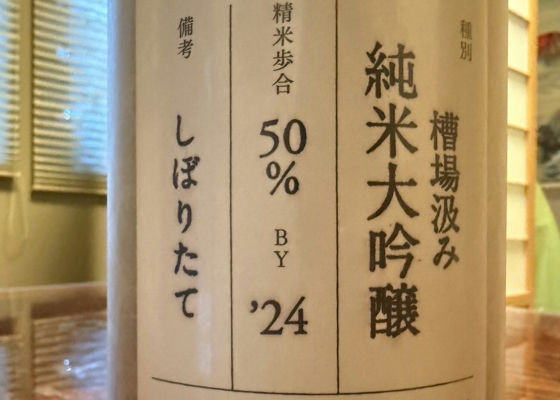 種別
槽場汲み
純米大吟醸
精米歩合
50
%
BY
'24
備考
しぼりたて